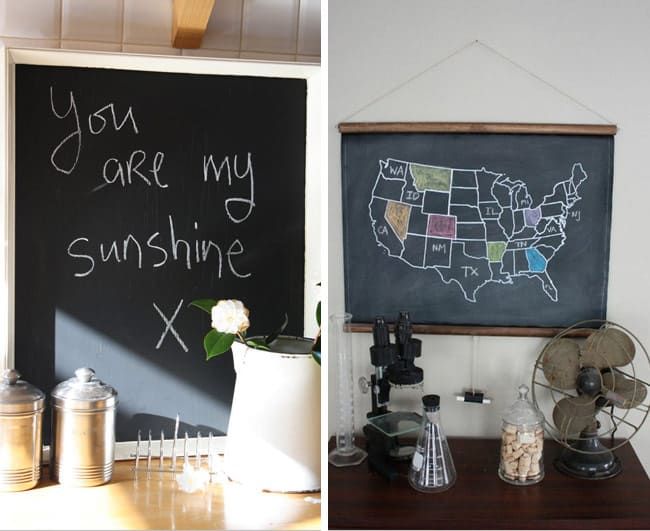 You
are my
sunshine
X
WA
ID
CA
NM
TX
IL
MI
TN
VA
NJ